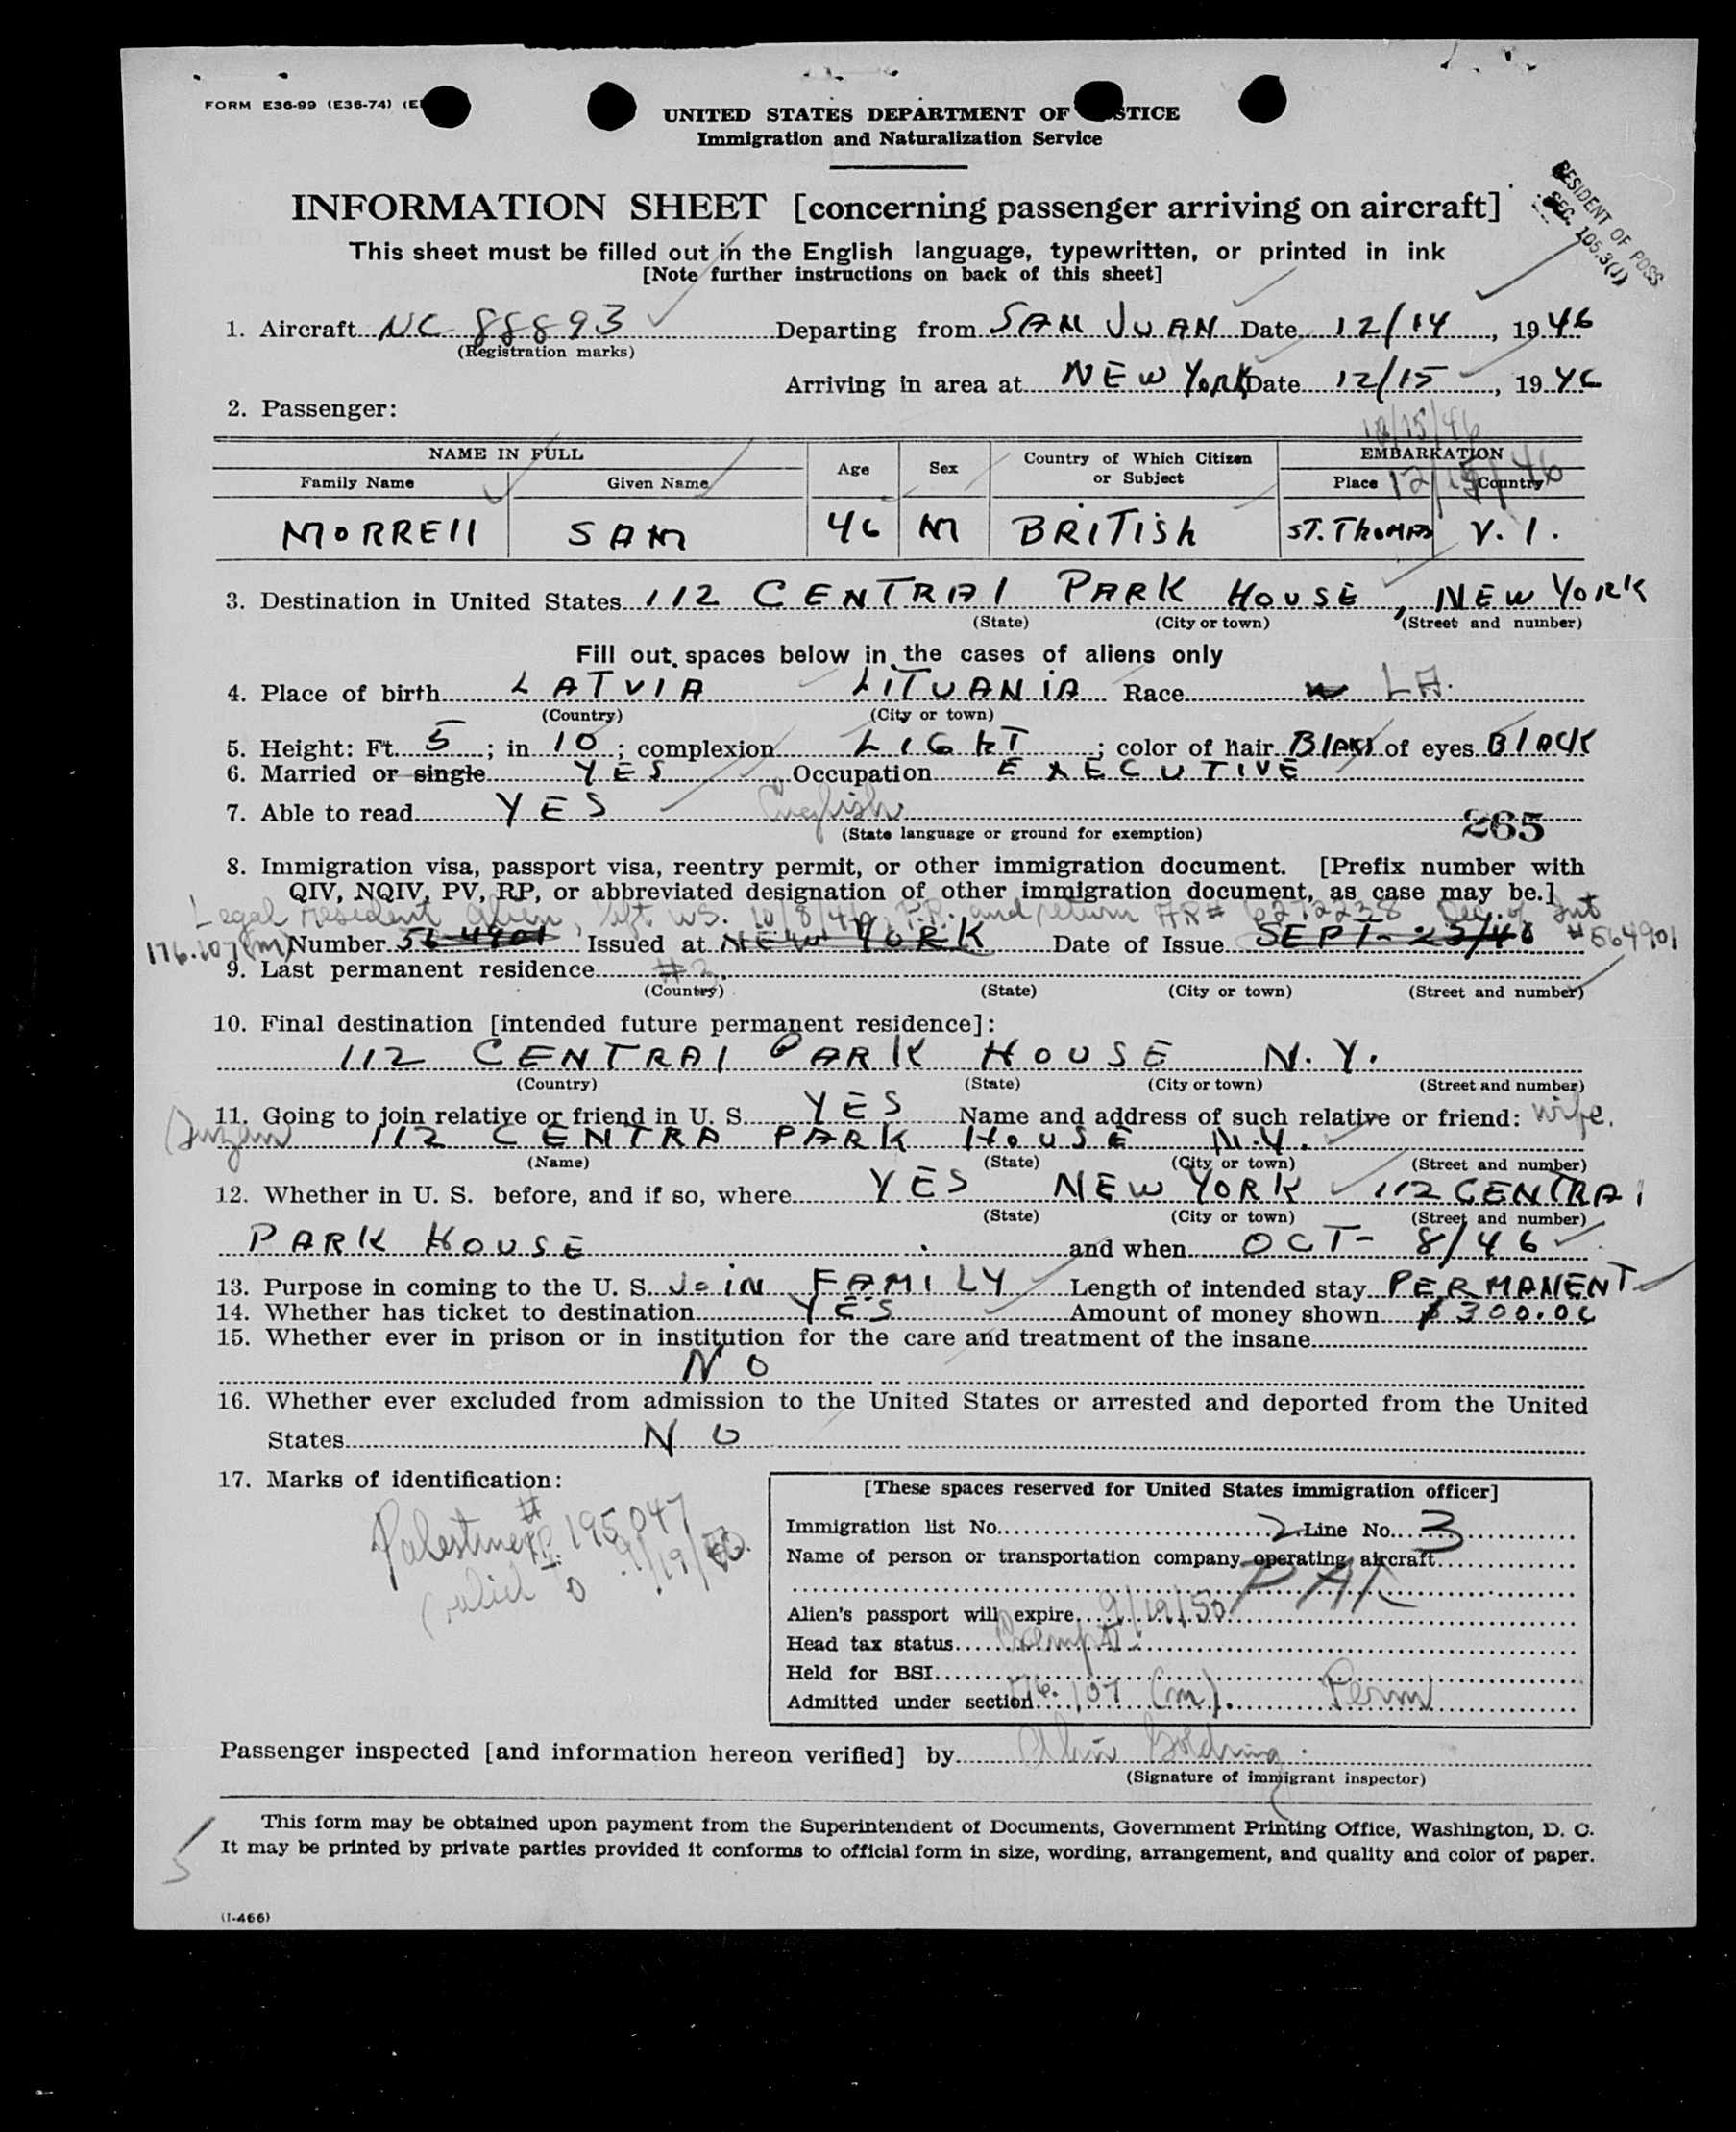 FORM E36-99 (E36-74)
UNITED STATES DEPARTMENT OF STICE
Immigration and Naturalization Service
INFORMATION SHEET [concerning passenger arriving on aircraft]
RESIDENT OF POSS
SEC. 105.3(J)
This sheet must be filled out in the English language, typewritten, or printed in ink
[Note further instructions on back of this sheet]
1. Aircraft NC 88893 Departing from SAN JUAN Date 12/14, 1946
(Registration marks)
Arriving in area at NEW York Date 12/15, 1946
2. Passenger:
12/15/46
NAME IN FULL Age Sex Country of Which Citizen or Subject EMBARKATION
Family Name Given Name Place Country
12/15/46
MORREll SAM 46 M BRITISh ST. ThoMAS V. I.
3. Destination in United States 112 CENTRAl PARK HOUSE, NEW YORK
(State) (City or town) (Street and number)
Fill out spaces below in the cases of aliens only
4. Place of birth LATVIA LITUANIA Race LA.
(Country) (City or town)
5. Height: Ft. 5; in 10; complexion LIGHT; color of hair BlACK of eyes BlACK
6. Married or single YES Occupation EXECUTIVE
7. Able to read YES English
(State language or ground for exemption)
265
8. Immigration visa, passport visa, reentry permit, or other immigration document. [Prefix number with
QIV, NQIV, PV, RP, or abbreviated designation of other immigration document, as case may be.]
Legal resident alien, left U.S. 10/8/46, and return AR# 6272238 Dec. of Int
176.107(m) Number 56 4901 Issued at NEW YORK Date of Issue SEPT- 25/46 #564901
9. Last permanent residence #3.
(Country) (State) (City or town) (Street and number)
10. Final destination [intended future permanent residence]:
112 CENTRAl PARK HOUSE N. Y.
(Country) (State) (City or town) (Street and number)
11. Going to join relative or friend in U. S. YES Name and address of such relative or friend: wife.
(Suzan 112 CENTRA PARK HOUSE N.Y.
(Name) (State) (City or town) (Street and number)
12. Whether in U. S. before, and if so, where YES NEW YORK 112 CENTRAl
(State) (City or town) (Street and number)
PARK HOUSE and when OCT- 8/46
13. Purpose in coming to the U. S. JoiN FAMILY Length of intended stay PERMANENT
14. Whether has ticket to destination YES Amount of money shown $300.00
15. Whether ever in prison or in institution for the care and treatment of the insane
NO
16. Whether ever excluded from admission to the United States or arrested and deported from the United
States NO
17. Marks of identification:
Palestine PP. # 195047
(valid to 9/19/50.
[These spaces reserved for United States immigration officer]
Immigration list No. 2 Line No. 3
Name of person or transportation company operating aircraft
PAA
Alien's passport will expire 9/19/50
Head tax status Exempt
Held for BSI
Admitted under section 176.107 (m). Perm
Passenger inspected [and information hereon verified] by
(Signature of immigrant inspector)
This form may be obtained upon payment from the Superintendent of Documents, Government Printing Office, Washington, D. C.
It may be printed by private parties provided it conforms to official form in size, wording, arrangement, and quality and color of paper.
(I-466)